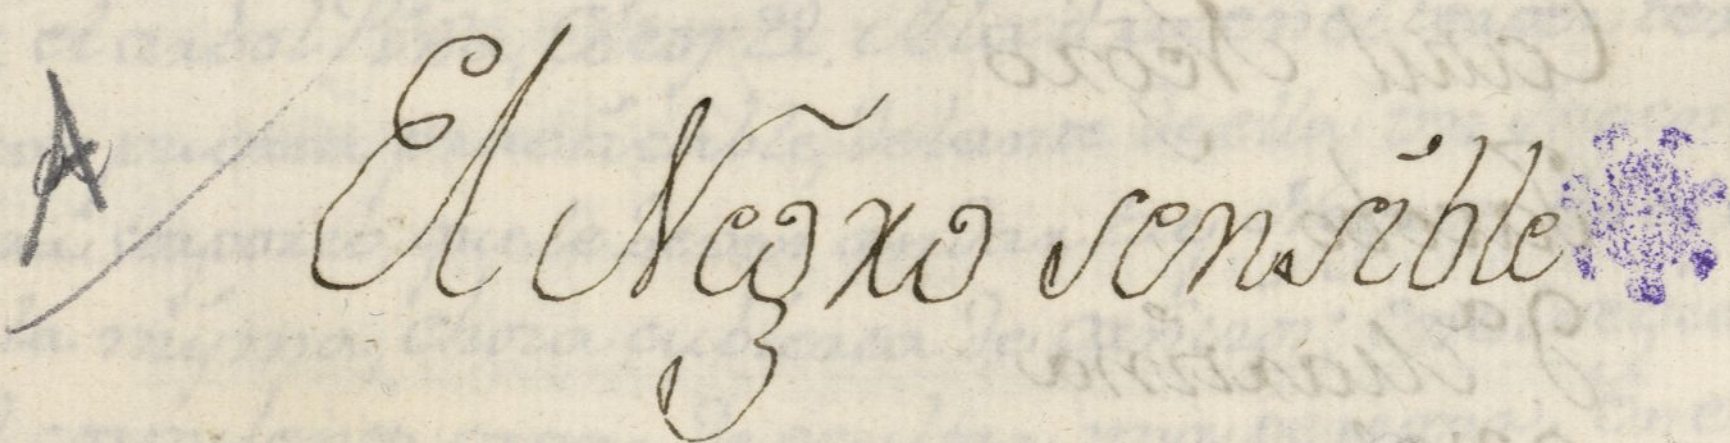 A El Negro sensible